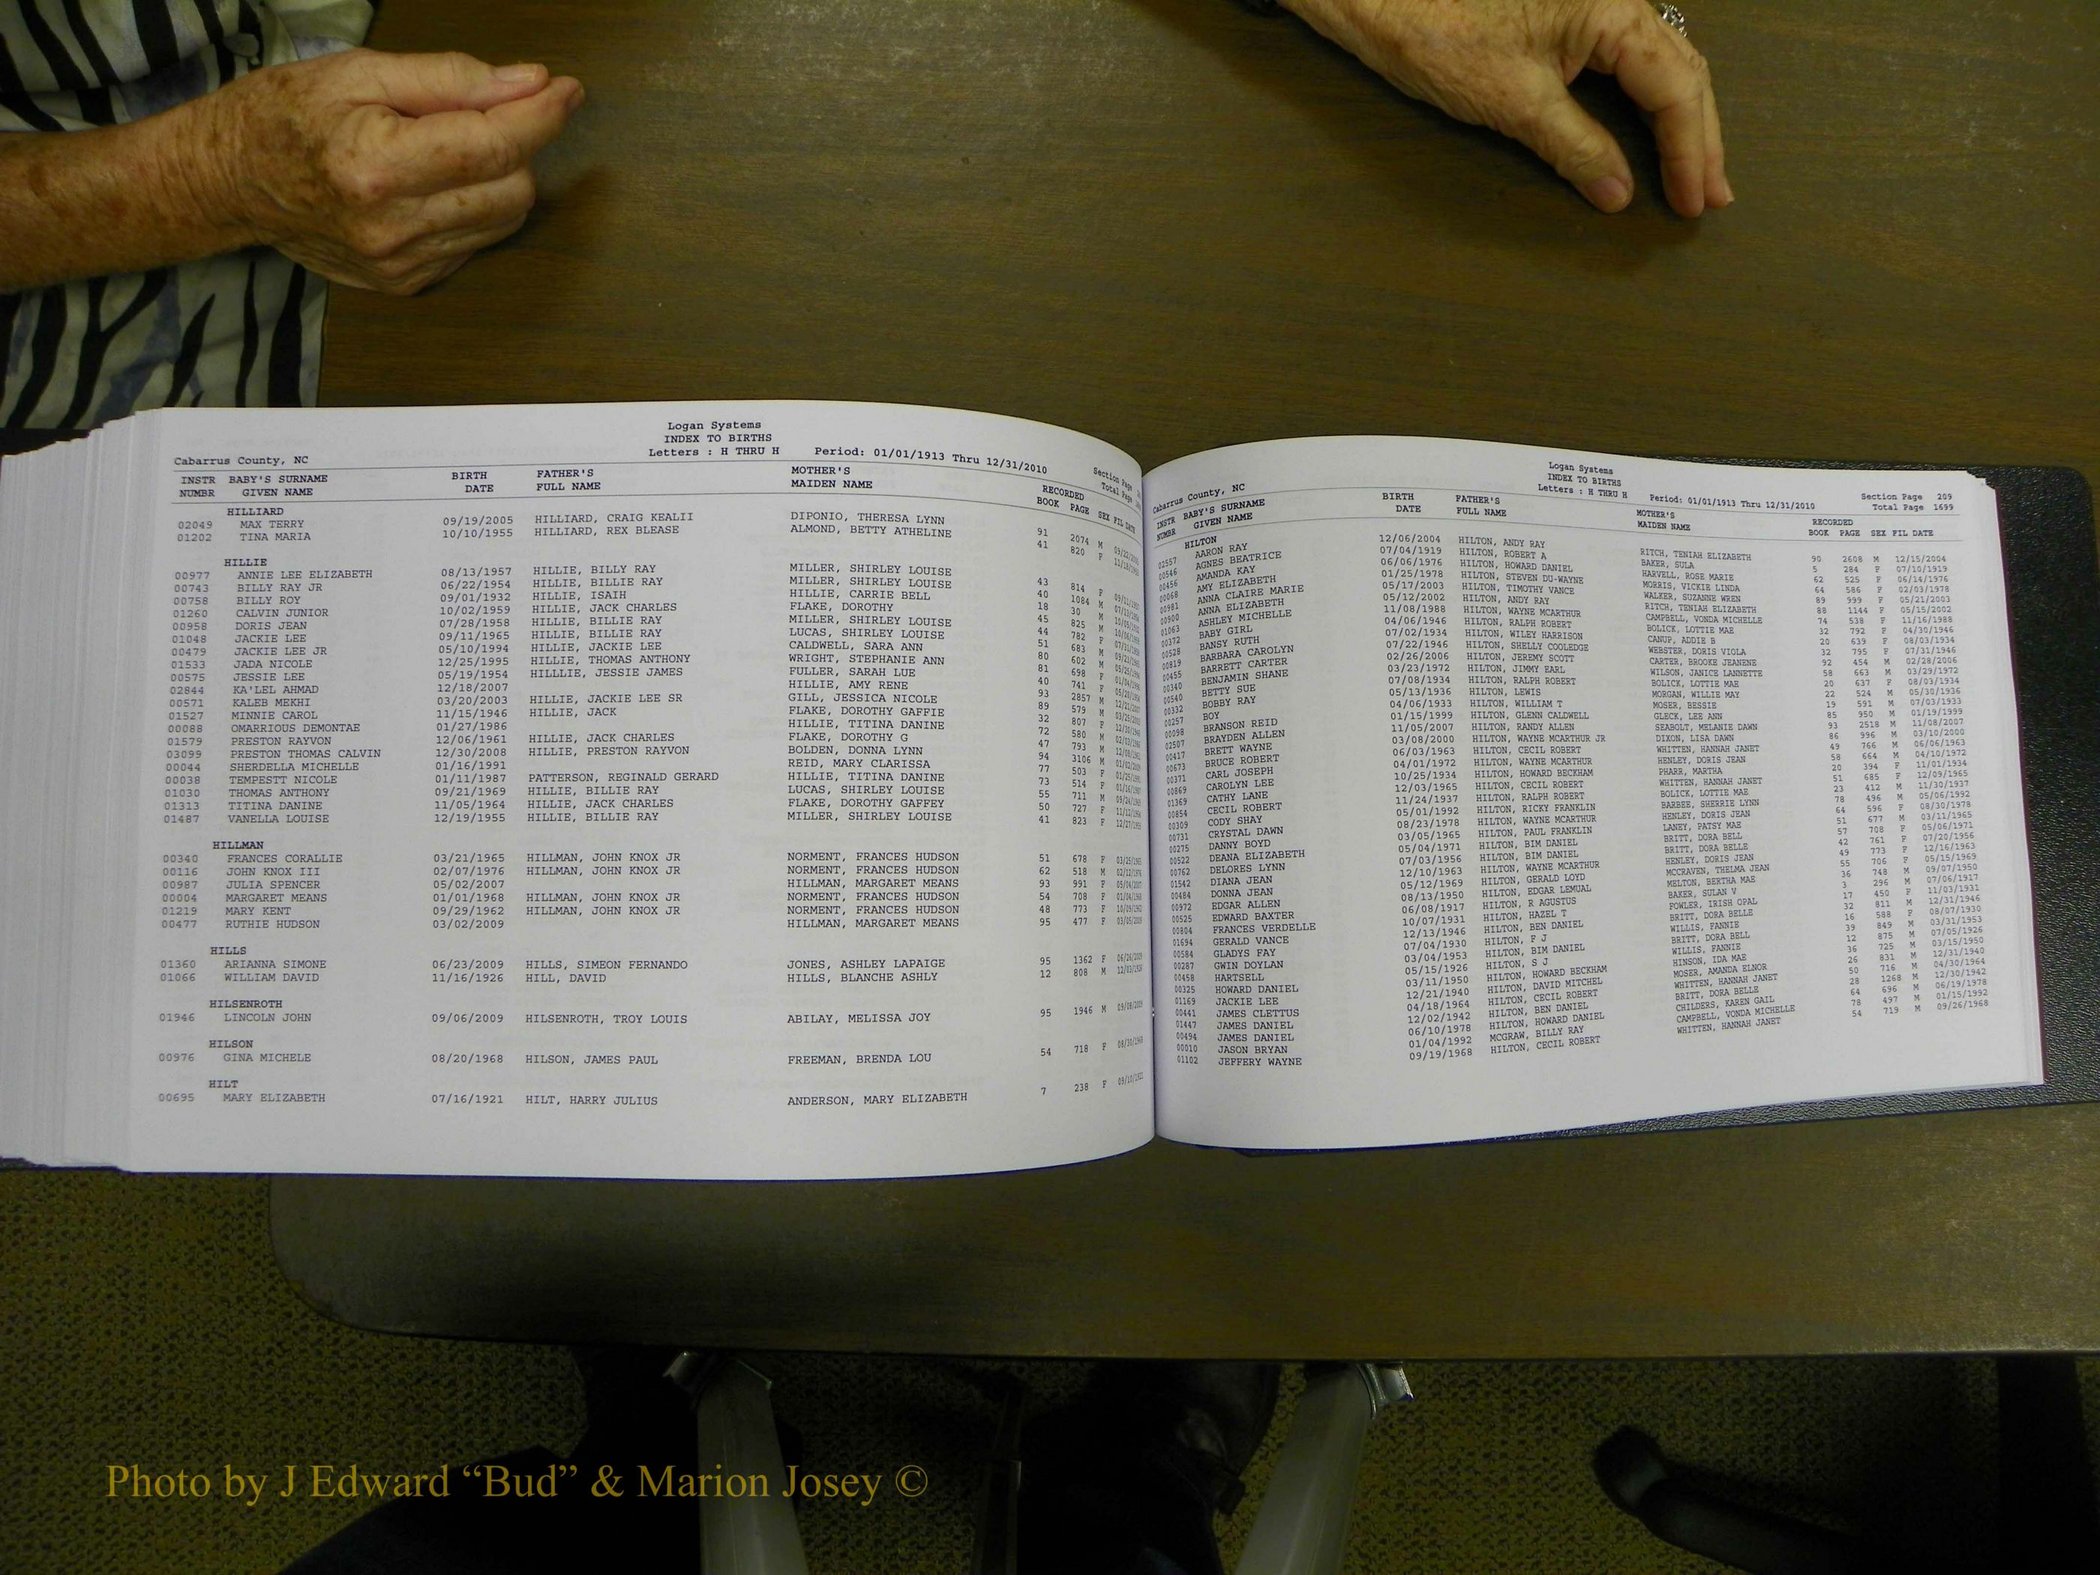 Logan Systems
INDEX TO BIRTHS
Cabarrus County, NC Letters : H THRU H Period: 01/01/1913 Thru 12/31/2010 Section Page
Total Page
INSTR BABY'S SURNAME BIRTH FATHER'S MOTHER'S RECORDED
NUMBR GIVEN NAME DATE FULL NAME MAIDEN NAME BOOK PAGE SEX FIL DATE
HILLIARD
02049 MAX TERRY 09/19/2005 HILLIARD, CRAIG KEALII DIPONIO, THERESA LYNN 91 2074 M
01202 TINA MARIA 10/10/1955 HILLIARD, REX BLEASE ALMOND, BETTY ATHELINE 41 820 F
HILLIE
00977 ANNIE LEE ELIZABETH 08/13/1957 HILLIE, BILLY RAY MILLER, SHIRLEY LOUISE 43 814 F
00743 BILLY RAY JR 06/22/1954 HILLIE, BILLIE RAY MILLER, SHIRLEY LOUISE 40 1084 M
00758 BILLY ROY 09/01/1932 HILLIE, ISAIH HILLIE, CARRIE BELL 18 30 M
01260 CALVIN JUNIOR 10/02/1959 HILLIE, JACK CHARLES FLAKE, DOROTHY 45 825 M
00958 DORIS JEAN 07/28/1958 HILLIE, BILLIE RAY MILLER, SHIRLEY LOUISE 44 782 F
01048 JACKIE LEE 09/11/1965 HILLIE, BILLIE RAY LUCAS, SHIRLEY LOUISE 51 683 M
00479 JACKIE LEE JR 05/10/1994 HILLIE, JACKIE LEE CALDWELL, SARA ANN 80 602 M
01533 JADA NICOLE 12/25/1995 HILLIE, THOMAS ANTHONY WRIGHT, STEPHANIE ANN 81 698 F
00575 JESSIE LEE 05/19/1954 HILLLIE, JESSIE JAMES FULLER, SARAH LUE 40 741 F
02844 KA'LEL AHMAD 12/18/2007 HILLIE, AMY RENE 93 2857 M
00571 KALEB MEKHI 03/20/2003 HILLIE, JACKIE LEE SR GILL, JESSICA NICOLE 89 579 M
01527 MINNIE CAROL 11/15/1946 HILLIE, JACK FLAKE, DOROTHY GAFFIE 32 807 F
00088 OMARRIOUS DEMONTAE 01/27/1986 HILLIE, TITINA DANINE 72 580 M
01579 PRESTON RAYVON 12/06/1961 HILLIE, JACK CHARLES FLAKE, DOROTHY G 47 793 M
03099 PRESTON THOMAS CALVIN 12/30/2008 HILLIE, PRESTON RAYVON BOLDEN, DONNA LYNN 94 3106 M
00044 SHERDELLA MICHELLE 01/16/1991 REID, MARY CLARISSA 77 503 F
00038 TEMPESTT NICOLE 01/11/1987 PATTERSON, REGINALD GERARD HILLIE, TITINA DANINE 73 514 F
01030 THOMAS ANTHONY 09/21/1969 HILLIE, BILLIE RAY LUCAS, SHIRLEY LOUISE 55 711 M
01313 TITINA DANINE 11/05/1964 HILLIE, JACK CHARLES FLAKE, DOROTHY GAFFEY 50 727 F
01487 VANELLA LOUISE 12/19/1955 HILLIE, BILLIE RAY MILLER, SHIRLEY LOUISE 41 823 F
HILLMAN
00340 FRANCES CORALLIE 03/21/1965 HILLMAN, JOHN KNOX JR NORMENT, FRANCES HUDSON 51 678 F
00116 JOHN KNOX III 02/07/1976 HILLMAN, JOHN KNOX JR NORMENT, FRANCES HUDSON 62 518 M
00987 JULIA SPENCER 05/02/2007 HILLMAN, MARGARET MEANS 93 991 F
00004 MARGARET MEANS 01/01/1968 HILLMAN, JOHN KNOX JR NORMENT, FRANCES HUDSON 54 708 F
01219 MARY KENT 09/29/1962 HILLMAN, JOHN KNOX JR NORMENT, FRANCES HUDSON 48 773 F
00477 RUTHIE HUDSON 03/02/2009 HILLMAN, MARGARET MEANS 95 477 F
HILLS
01360 ARIANNA SIMONE 06/23/2009 HILLS, SIMEON FERNANDO JONES, ASHLEY LAPAIGE 95 1362 F
01066 WILLIAM DAVID 11/16/1926 HILL, DAVID HILLS, BLANCHE ASHLY 12 808 M
HILSENROTH
01946 LINCOLN JOHN 09/06/2009 HILSENROTH, TROY LOUIS ABILAY, MELISSA JOY 95 1946 M
HILSON
00976 GINA MICHELE 08/20/1968 HILSON, JAMES PAUL FREEMAN, BRENDA LOU 54 718 F
HILT
00695 MARY ELIZABETH 07/16/1921 HILT, HARRY JULIUS ANDERSON, MARY ELIZABETH 7 238 F
Logan Systems
INDEX TO BIRTHS
Cabarrus County, NC Letters : H THRU H Period: 01/01/1913 Thru 12/31/2010 Section Page 209
Total Page 1699
INSTR BABY'S SURNAME BIRTH FATHER'S MOTHER'S RECORDED
NUMBR GIVEN NAME DATE FULL NAME MAIDEN NAME BOOK PAGE SEX FIL DATE
HILTON
02557 AARON RAY 12/06/2004 HILTON, ANDY RAY RITCH, TENIAH ELIZABETH 90 2608 M 12/15/2004
00546 AGNES BEATRICE 07/04/1919 HILTON, ROBERT A BAKER, SULA 5 284 F 07/10/1919
00456 AMANDA KAY 06/06/1976 HILTON, HOWARD DANIEL HARVELL, ROSE MARIE 62 525 F 06/14/1976
00068 AMY ELIZABETH 01/25/1978 HILTON, STEVEN DU-WAYNE MORRIS, VICKIE LINDA 64 586 F 02/03/1978
00981 ANNA CLAIRE MARIE 05/17/2003 HILTON, TIMOTHY VANCE WALKER, SUZANNE WREN 89 999 F 05/21/2003
00900 ANNA ELIZABETH 05/12/2002 HILTON, ANDY RAY RITCH, TENIAH ELIZABETH 88 1144 F 05/15/2002
01063 ASHLEY MICHELLE 11/08/1988 HILTON, WAYNE MCARTHUR CAMPBELL, VONDA MICHELLE 74 538 F 11/16/1988
00372 BABY GIRL 04/06/1946 HILTON, RALPH ROBERT BOLICK, LOTTIE MAE 32 792 F 04/30/1946
00528 BANSY RUTH 07/02/1934 HILTON, WILEY HARRISON CANUP, ADDIE B 20 639 F 08/03/1934
00819 BARBARA CAROLYN 07/22/1946 HILTON, SHELLY COOLEDGE WEBSTER, DORIS VIOLA 32 795 F 07/31/1946
00455 BARRETT CARTER 02/26/2006 HILTON, JEREMY SCOTT CARTER, BROOKE JEANENE 92 454 M 02/28/2006
00340 BENJAMIN SHANE 03/23/1972 HILTON, JIMMY EARL WILSON, JANICE LANNETTE 58 663 M 03/29/1972
00540 BETTY SUE 07/08/1934 HILTON, RALPH ROBERT BOLICK, LOTTIE MAE 20 637 F 08/03/1934
00332 BOBBY RAY 05/13/1936 HILTON, LEWIS MORGAN, WILLIE MAY 22 524 M 05/30/1936
00257 BOY 04/06/1933 HILTON, WILLIAM T MOSER, BESSIE 19 591 M 07/03/1933
00098 BRANSON REID 01/15/1999 HILTON, GLENN CALDWELL GLECK, LEE ANN 85 950 M 01/19/1999
02507 BRAYDEN ALLEN 11/05/2007 HILTON, RANDY ALLEN SEABOLT, MELANIE DAWN 93 2518 M 11/08/2007
00417 BRETT WAYNE 03/08/2000 HILTON, WAYNE MCARTHUR JR DIXON, LISA DAWN 86 996 M 03/10/2000
00673 BRUCE ROBERT 06/03/1963 HILTON, CECIL ROBERT WHITTEN, HANNAH JANET 49 766 M 06/06/1963
00371 CARL JOSEPH 04/01/1972 HILTON, WAYNE MCARTHUR HENLEY, DORIS JEAN 58 664 M 04/10/1972
00869 CAROLYN LEE 10/25/1934 HILTON, HOWARD BECKHAM PHARR, MARTHA 20 394 F 11/01/1934
01369 CATHY LANE 12/03/1965 HILTON, CECIL ROBERT WHITTEN, HANNAH JANET 51 685 F 12/09/1965
00854 CECIL ROBERT 11/24/1937 HILTON, RALPH ROBERT BOLICK, LOTTIE MAE 23 412 M 11/30/1937
00309 CODY SHAY 05/01/1992 HILTON, RICKY FRANKLIN BARBEE, SHERRIE LYNN 78 496 M 05/06/1992
00731 CRYSTAL DAWN 08/23/1978 HILTON, WAYNE MCARTHUR HENLEY, DORIS JEAN 64 596 F 08/30/1978
00275 DANNY BOYD 03/05/1965 HILTON, PAUL FRANKLIN LANEY, PATSY MAE 51 677 M 03/11/1965
00522 DEANA ELIZABETH 05/04/1971 HILTON, BIM DANIEL BRITT, DORA BELL 57 708 F 05/06/1971
00762 DELORES LYNN 07/03/1956 HILTON, BIM DANIEL BRITT, DORA BELLE 42 761 F 07/20/1956
01542 DIANA JEAN 12/10/1963 HILTON, WAYNE MCARTHUR HENLEY, DORIS JEAN 49 773 F 12/16/1963
00484 DONNA JEAN 05/12/1969 HILTON, GERALD LOYD MCCRAVEN, THELMA JEAN 55 706 F 05/15/1969
00972 EDGAR ALLEN 08/13/1950 HILTON, EDGAR LEMUAL MELTON, BERTHA MAE 36 748 M 09/07/1950
00525 EDWARD BAXTER 06/08/1917 HILTON, R AGUSTUS BAKER, SULAN V 3 296 M 07/06/1917
00804 FRANCES VERDELLE 10/07/1931 HILTON, HAZEL T FOWLER, IRISH OPAL 17 450 F 11/03/1931
01694 GERALD VANCE 12/13/1946 HILTON, BEN DANIEL BRITT, DORA BELLE 32 811 M 12/31/1946
00584 GLADYS FAY 07/04/1930 HILTON, F J WILLIS, FANNIE 16 588 F 08/07/1930
00287 GWIN DOYLAN 03/04/1953 HILTON, BIM DANIEL BRITT, DORA BELL 39 849 M 03/31/1953
00458 HARTSELL 05/15/1926 HILTON, S J WILLIS, FANNIE 12 875 M 07/05/1926
00325 HOWARD DANIEL 03/11/1950 HILTON, HOWARD BECKHAM HINSON, IDA MAE 36 725 M 03/15/1950
01169 JACKIE LEE 12/21/1940 HILTON, DAVID MITCHEL MOSER, AMANDA ELNOR 26 831 M 12/31/1940
00441 JAMES CLETTUS 04/18/1964 HILTON, CECIL ROBERT WHITTEN, HANNAH JANET 50 716 M 04/30/1964
01447 JAMES DANIEL 12/02/1942 HILTON, BEN DANIEL BRITT, DORA BELLE 28 1268 M 12/30/1942
00494 JAMES DANIEL 06/10/1978 HILTON, HOWARD DANIEL CHILDERS, KAREN GAIL 64 696 M 06/19/1978
00010 JASON BRYAN 01/04/1992 MCGRAW, BILLY RAY CAMPBELL, VONDA MICHELLE 78 497 M 01/15/1992
01102 JEFFERY WAYNE 09/19/1968 HILTON, CECIL ROBERT WHITTEN, HANNAH JANET 54 719 M 09/26/1968
Photo by J Edward “Bud” & Marion Josey ©